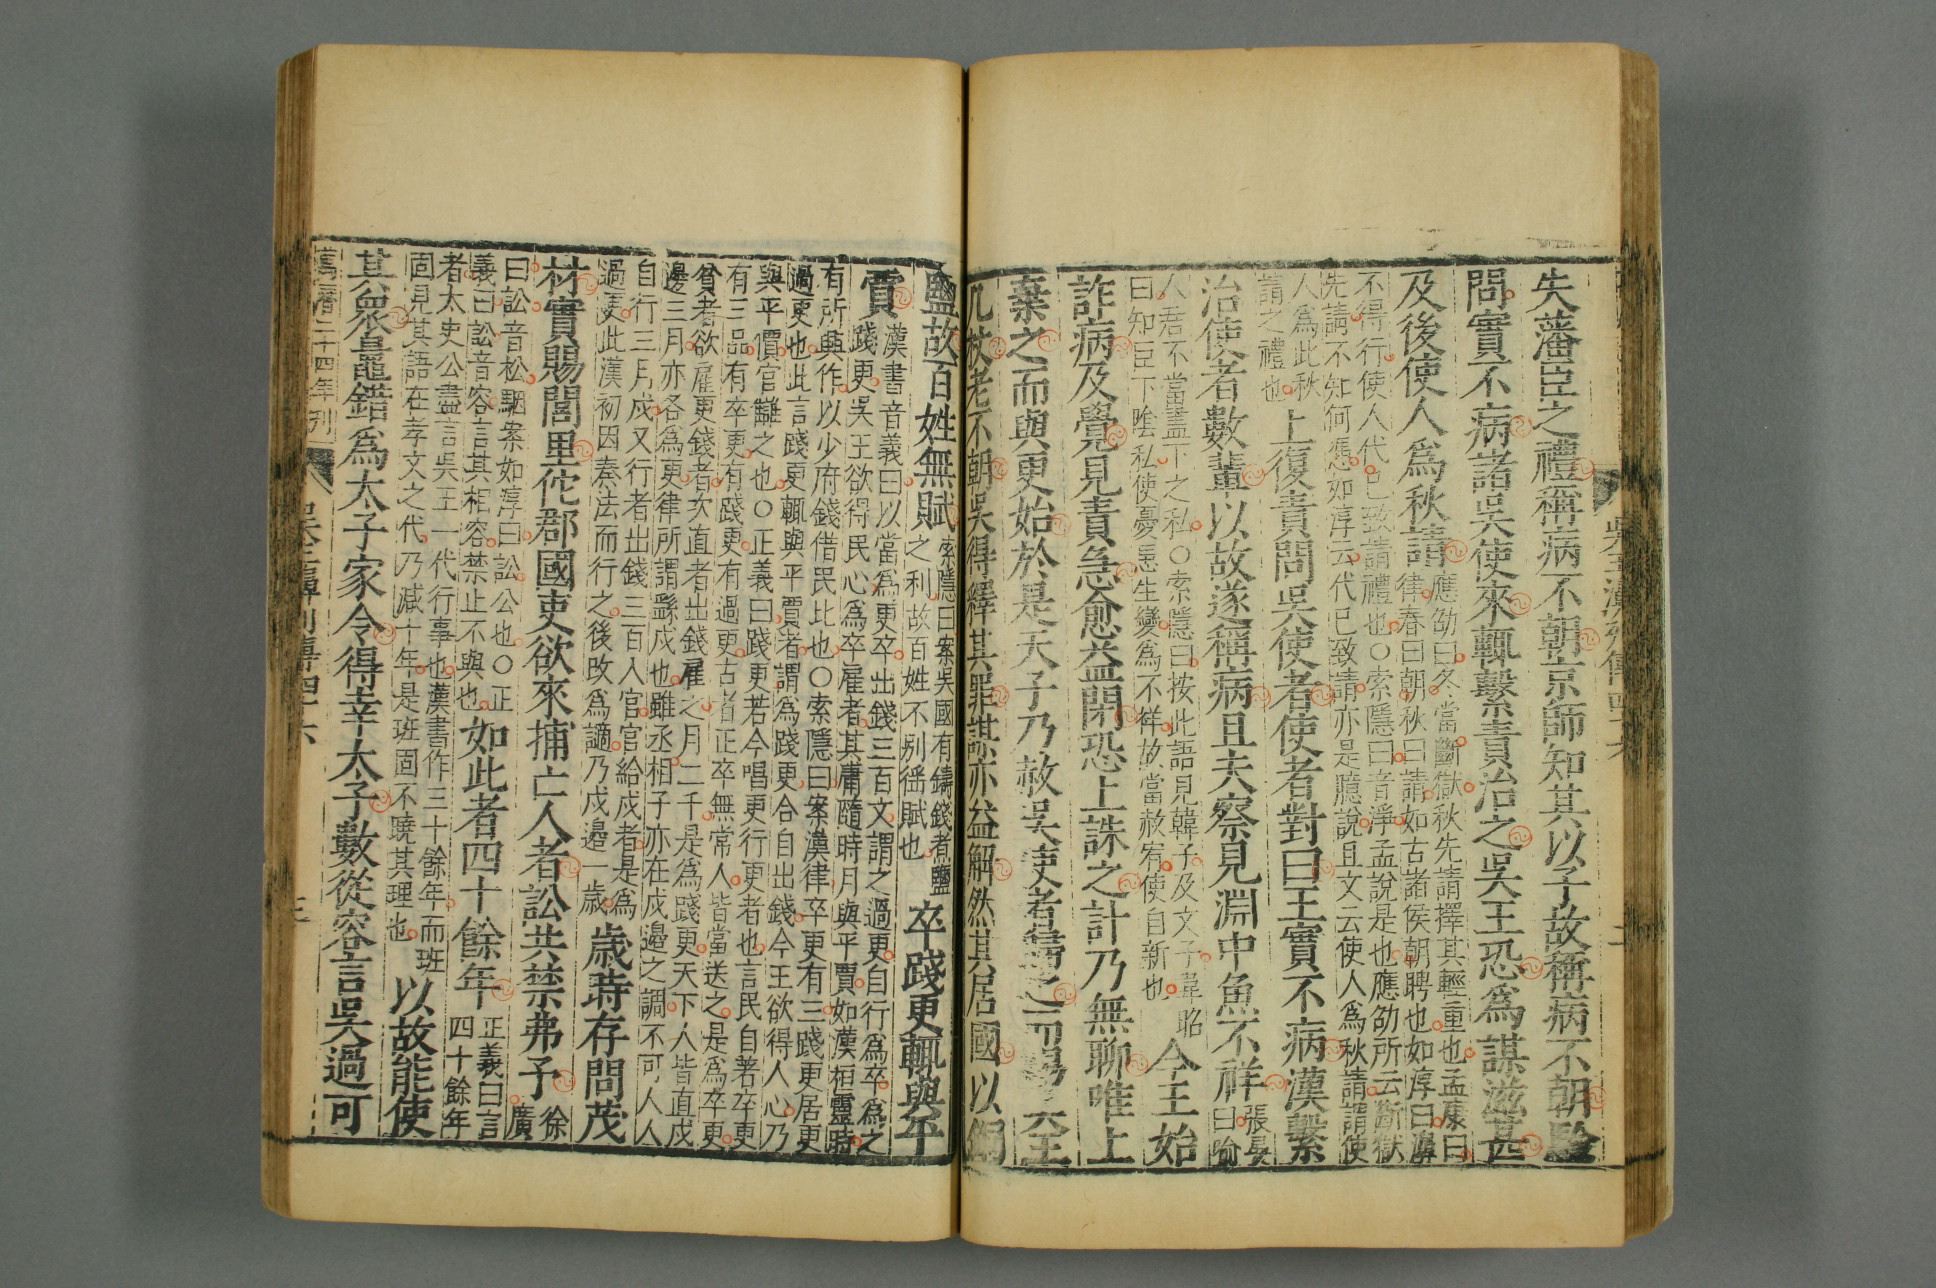 吳王濞列傳四十六 二
失藩臣之禮稱病不朝京師知其以子故稱病不朝驗
問實不病諸吳使來輒繫責治之吳王恐爲謀滋甚
及後使人爲秋請
應劭曰冬當斷獄秋先請擇其輕重也孟康曰
律春曰朝秋曰請如古諸侯朝聘也如淳曰濞
不得行使人代己致請禮也○索隱曰音淨孟說是也應劭所云斷獄
先請不知何憑如淳云代己致請亦是臆說且文云使人爲秋請謂使
人爲此秋
請之禮也
上復責問吳使者使者對曰王實不病漢繫
治使者數輩以故遂稱病且夫察見淵中魚不祥
張晏
曰喻
人君不當盡下之私○索隱曰按此語見韓子及文子韋昭
曰知臣下陰私使憂患生變爲不祥故當赦宥使自新也
今王始
詐病及覺見責急愈益閉恐上誅之計乃無聊唯上
棄之而與更始於是天子乃赦吳使者歸之而賜吳王
几杖老不朝吳得釋其罪謀亦益解然其居國以銅
鹽故百姓無賦
索隱曰案吳國有鑄錢煮鹽
之利故百姓不別徭賦也
卒踐更輒與平
賈
漢書音義曰以當爲更卒出錢三百文謂之過更自行爲卒爲之
踐更吳王欲得民心爲卒雇者其庸隨時月與平賈如漢桓靈時
有所興作以少府錢借民比也○索隱曰案漢律卒更有三踐更居更
過更也此言踐更輒與平賈者謂爲踐更合自出錢今王欲得人心乃
與平價官讎之也○正義曰踐更若今唱更行更者也言民自著卒更
有三品有卒更有踐更有過更古者正卒無常人皆當迭之是爲卒更
貧者欲雇更錢者次直者出錢雇之月二千是爲踐更天下人皆直戍
邊三月亦各爲更律所謂繇戍也雖丞相子亦在戍邊之調不可人人
自行三月戍又行者出錢三百入官官給戍者是爲
過更此漢初因秦法而行之後改爲謫乃戍邊一歲
歲時存問茂
材賞賜閭里佗郡國吏欲來捕亡人者訟共禁弗予
徐
廣
曰訟音松駰案如淳曰訟公也○正
義曰訟音容言其相容禁止不與也
如此者四十餘年
正義曰言
四十餘年
者太史公盡言吳王一代行事也漢書作三十餘年而班
固見其語在孝文之代乃減十年是班固不曉其理也
以故能使
其衆鼂錯爲太子家令得幸太子數從容言吳過可
萬曆二十四年刊 吳王濞列傳四十六 三